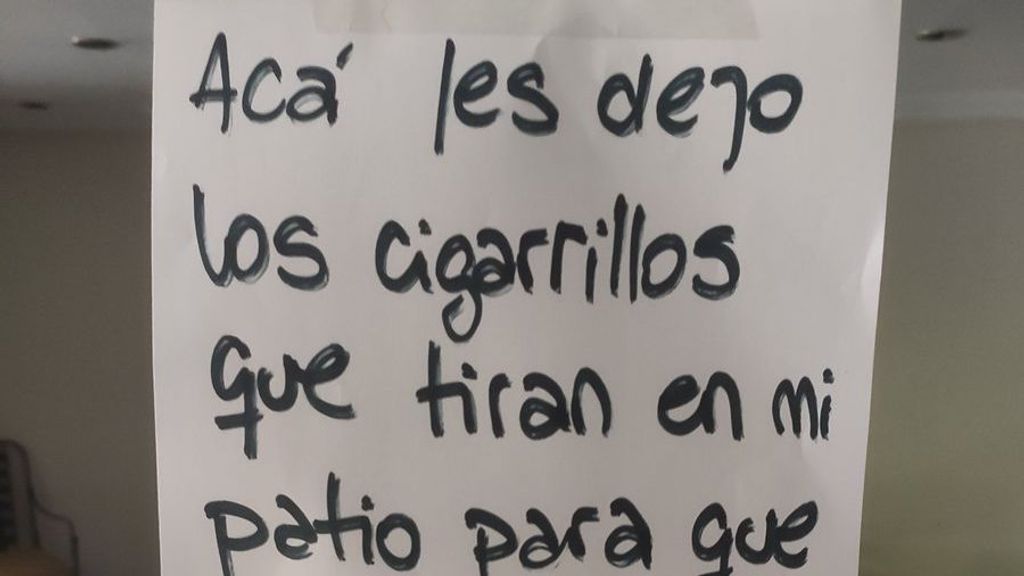 Acá les dejo
los cigarrillos
que tiran en mi
patio para que